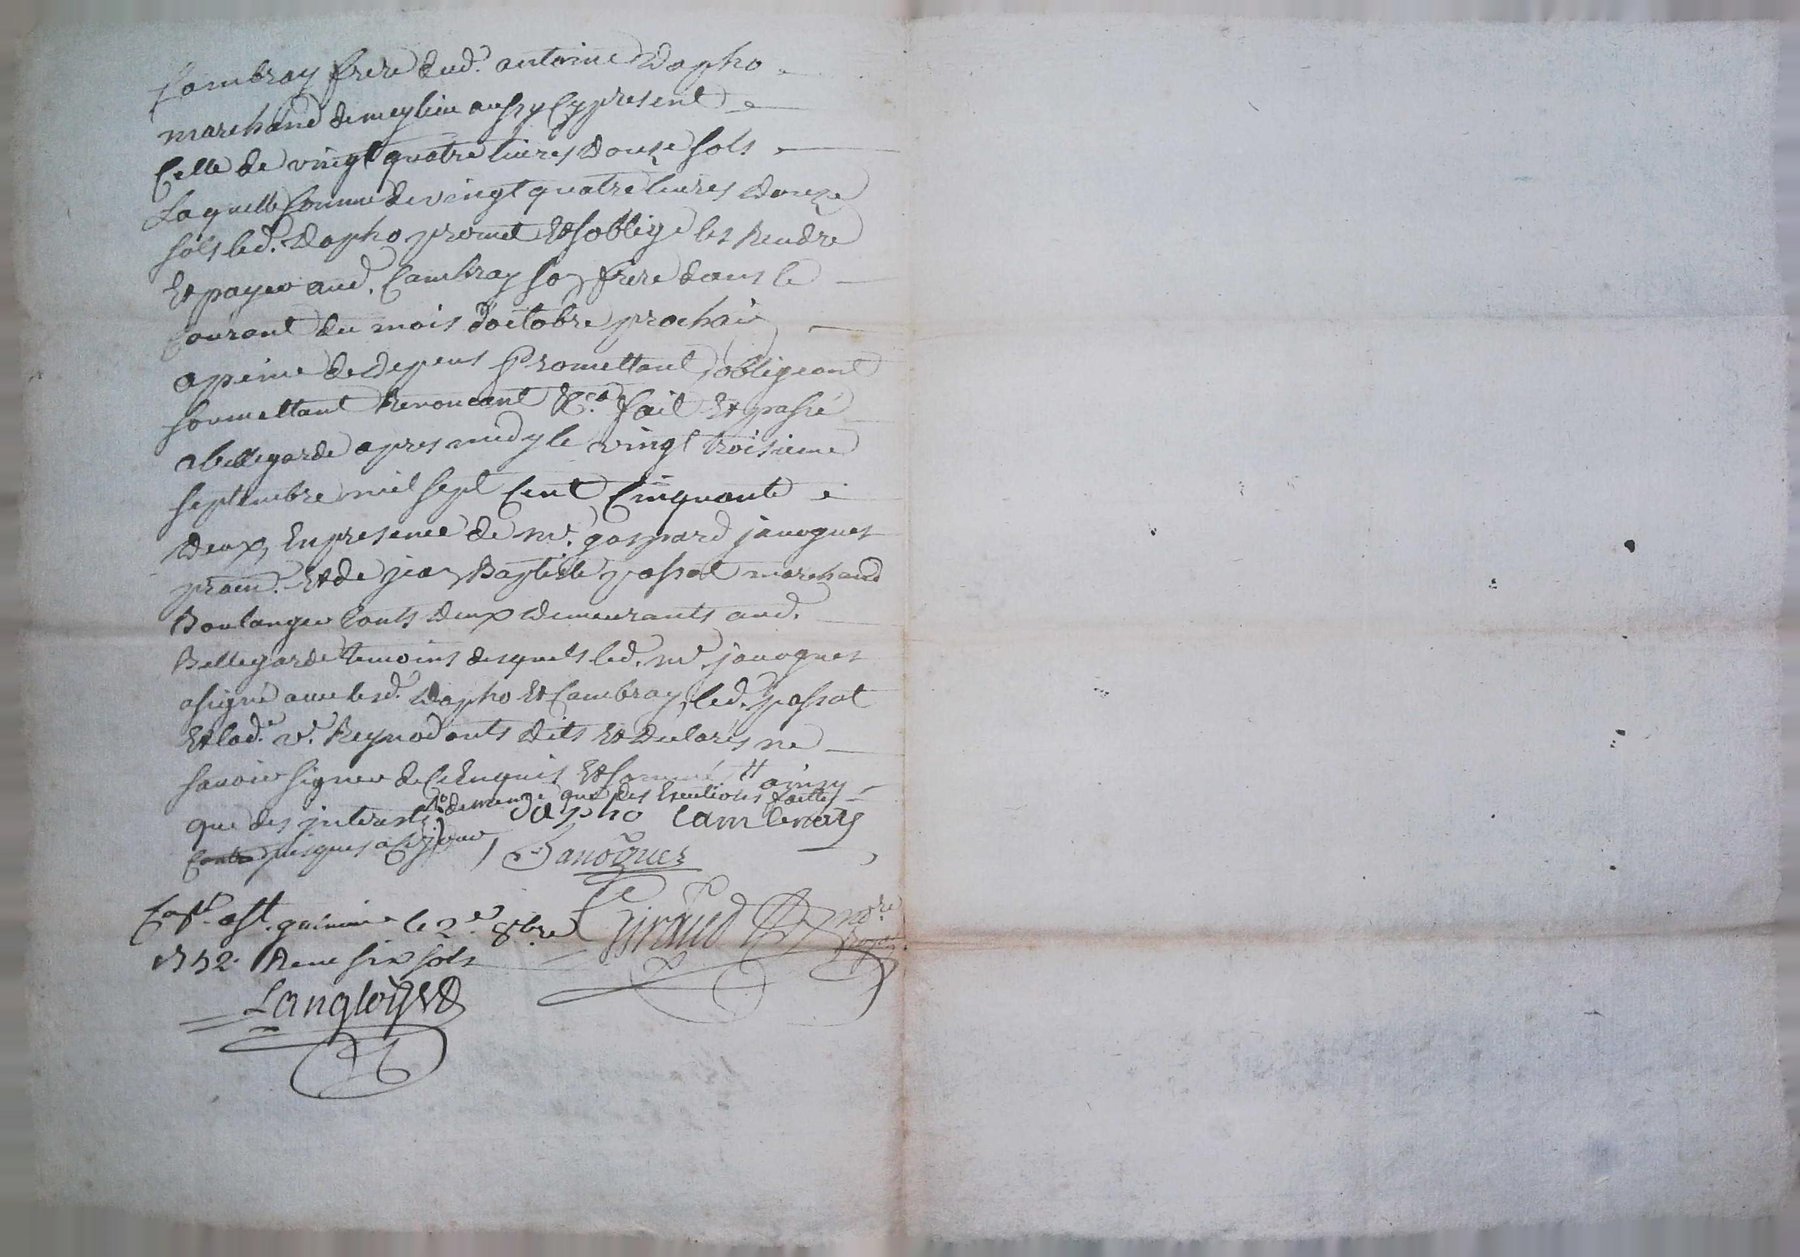 Cambray frere dud. antoine Dapho
marchand de meylieu aussy Cy present
Celle de vingt quatre livres douze sols
Laquelle somme de vingt quatre livres douze
sols led. Dapho promet Et soblige les Rendre
Et payer aud. Cambray so frere dans le
Courant du mois doctobre prochain
a peine de Depens Promettant obligeant
soumettant Renoncant &ca. fait Et passé
a bellegarde apres midy le vingt troisieme
septembre mil sept Cent Cinquante
Deux, En presence de mr. gaspard janognes
pratn. Et de jean Baptiste passot marchand
Boulanger touts deux demeurants aud.
Bellegarde temoins desquels led. mr. janognes
a signé avec lesd. Dapho Et Cambray, led. passot
Et lad. ve. Reynod onts dits Et Declarés ne
savoir signer de Ce Enquis Et sommé ainsy
que des interests et demeure que des Executions faittes
jusques a Ce jour
Dapho Cambray
Janognes
Coll. aSt. galmier le 2e. 8bre
1752. Reçu six sols
Giraud nore Royal
Langlois